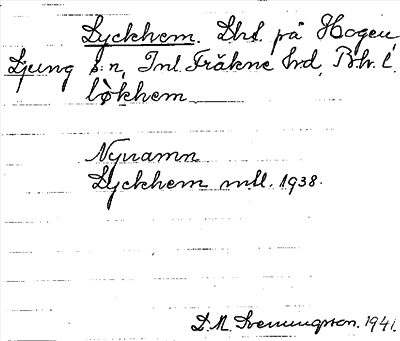 Lyckhem. Lht. på Hogen
Ljung s:n, Inl. Fräkne hd, Bh. l.
lỳkhem
Nynamn
Lyckhem mtl. 1938.
D. A. Svenungsson. 1941.